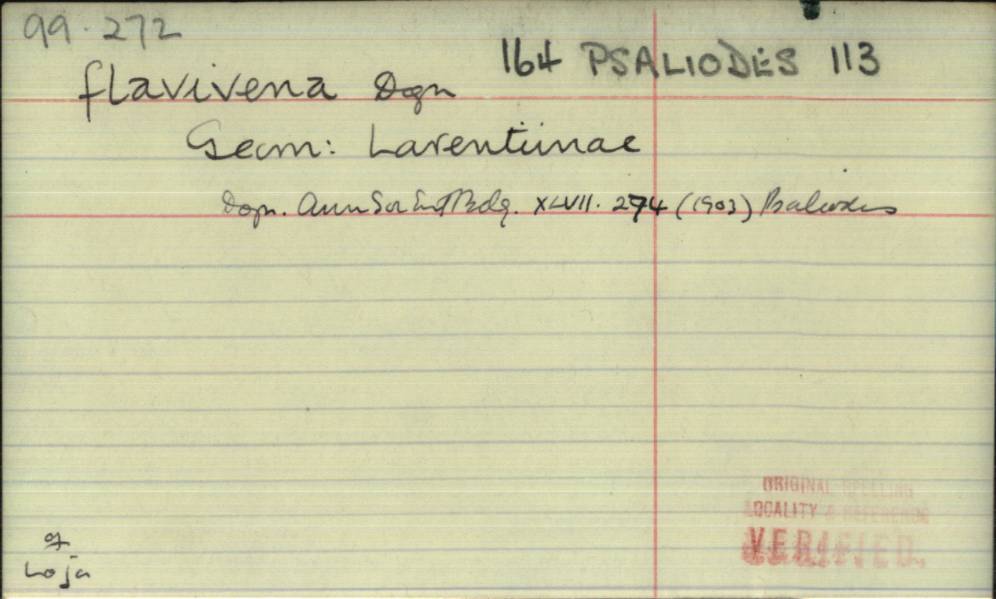 99.272
164 PSALIODES 113
flavivena Dogn
Geom: Larentiinae
Dogn. Ann Soc Ent Belg. XLVII. 274 (1903) Psaliodes
ORIGINAL SPELLING
LOCALITY & REFERENCE
VERIFIED.
Loja